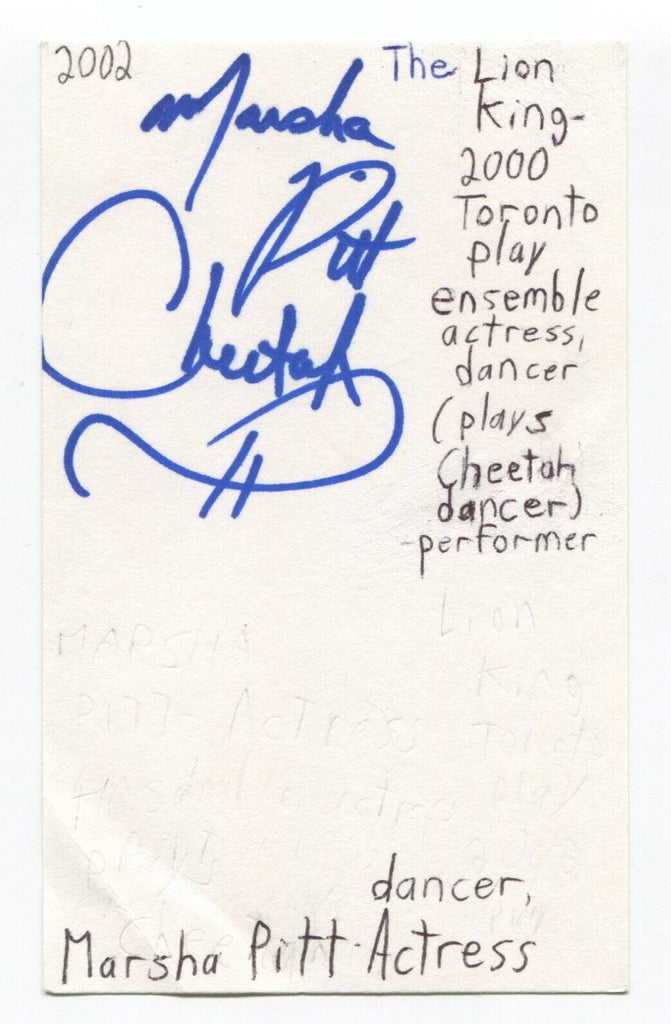 2002
Marsha
Pitt
Cheetah
The Lion
King-
2000
Toronto
play
ensemble
actress,
dancer
(plays
Cheetah
dancer)
-performer
Lion
King
Toronto
play
MARSHA
PITT - Actress
dancer,
Marsha Pitt-Actress